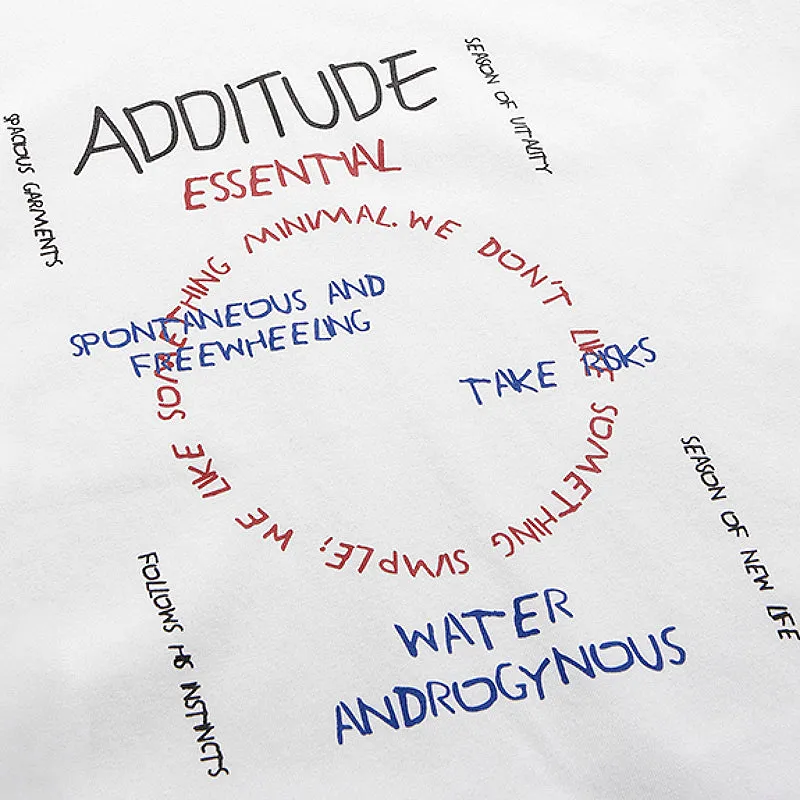 ADDITUDE
ESSENTIAL
SEASON OF VITALITY
SPACIOUS GARMENTS
WE DON'T LIKE SOMETHING SIMPLE; WE LIKE SOMETHING MINIMAL.
SPONTANEOUS AND
FREEWHEELING
TAKE RISKS
SEASON OF NEW LIFE
FOLLOWS HIS INSTINCTS
WATER
ANDROGYNOUS